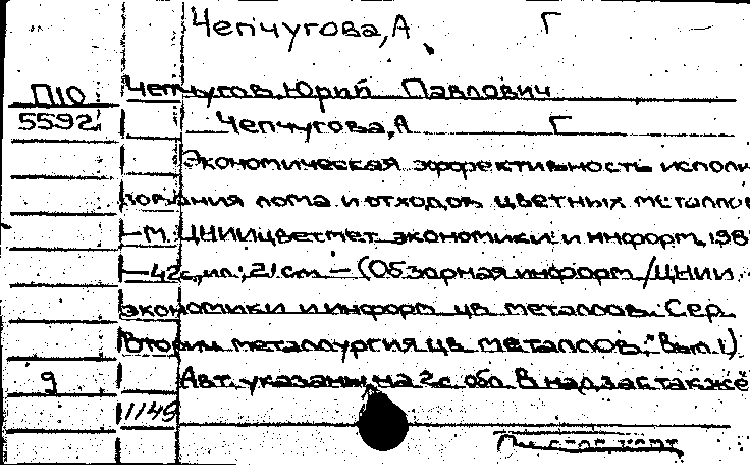 Чепчугова, А Г
П10 Чепчугов Юрий Павлович
5592 Чепчугова, А Г
Экономическая эффективность исполь
зования лома и отходов цветных металлов
—М. ЦНИИцветмет экономики и информ, 198
—42с., ил.; 21см — (Обзорная информ /ЦНИИ
экономики и информ цв металлов. Сер.
Вторичн металлургия цв металлов; Вып.1)
9 Авт. указаны на 2с обл. В надзаг. также
1145